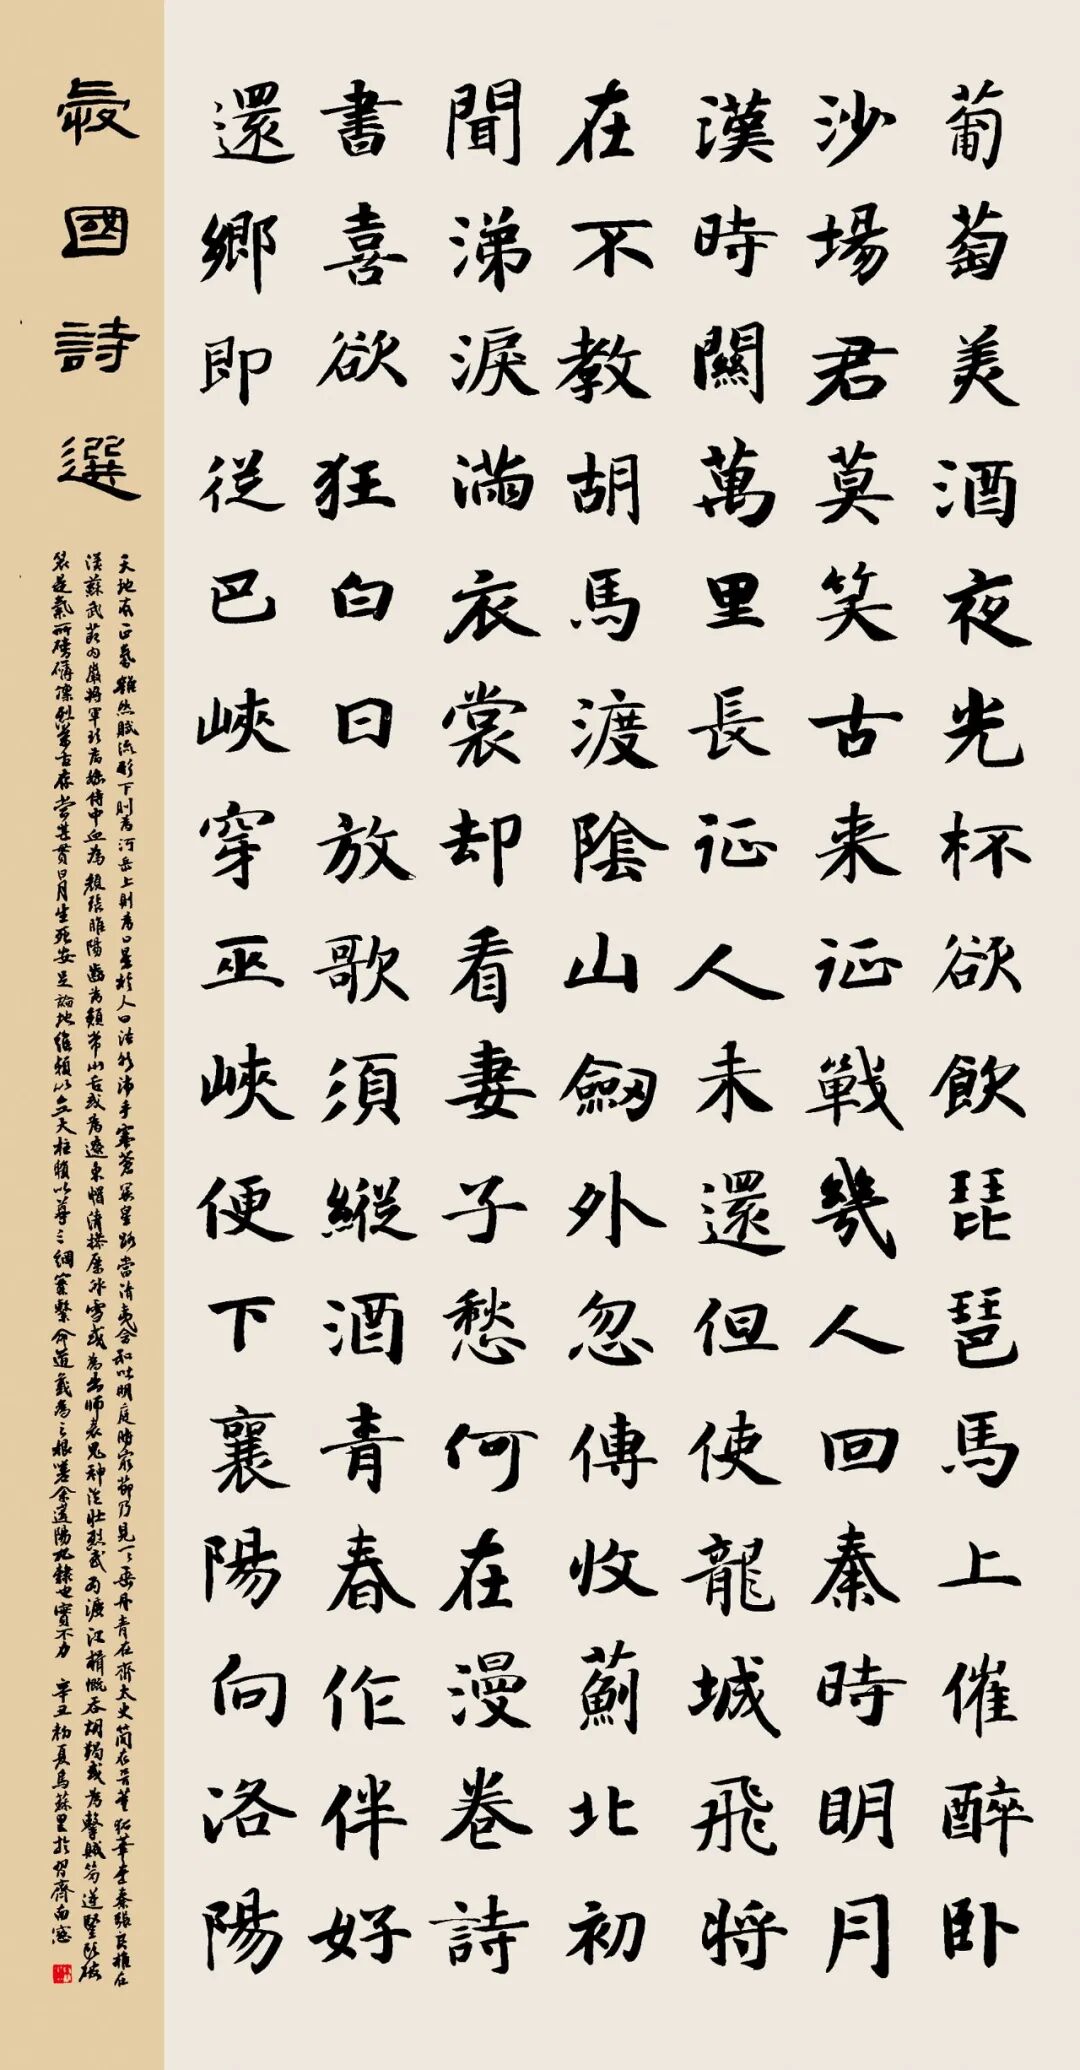 葡萄美酒夜光杯欲飲琵琶馬上催醉卧
沙場君莫笑古来征戰幾人回秦時明月
漢時關萬里長征人未還但使龍城飛將
在不教胡馬渡陰山劒外忽傳收薊北初
聞涕淚滿衣裳却看妻子愁何在漫卷詩
書喜欲狂白日放歌須縱酒青春作伴好
還鄉即從巴峽穿巫峽便下襄陽向洛陽
愛國詩選
天地有正氣雜然賦流形下則為河岳上則為日星於人曰浩然沛乎塞蒼冥皇路當清夷含和吐明庭時窮節乃見一一垂丹青在齊太史簡在晉董狐筆在秦張良椎在
漢蘇武節為嚴將軍頭為嵇侍中血為張睢陽齒為顏常山舌或為遼東帽清操厲冰雪或為出師表鬼神泣壯烈或為渡江楫慨吞胡羯或為擊賊笏逆豎頭破
裂是氣所磅礴凛烈萬古存當其貫日月生死安足論地維賴以立天柱賴以尊三綱實繫命道義為之根嗟余遘陽九隸也實不力 辛丑初夏烏蘇里於習齋南窗